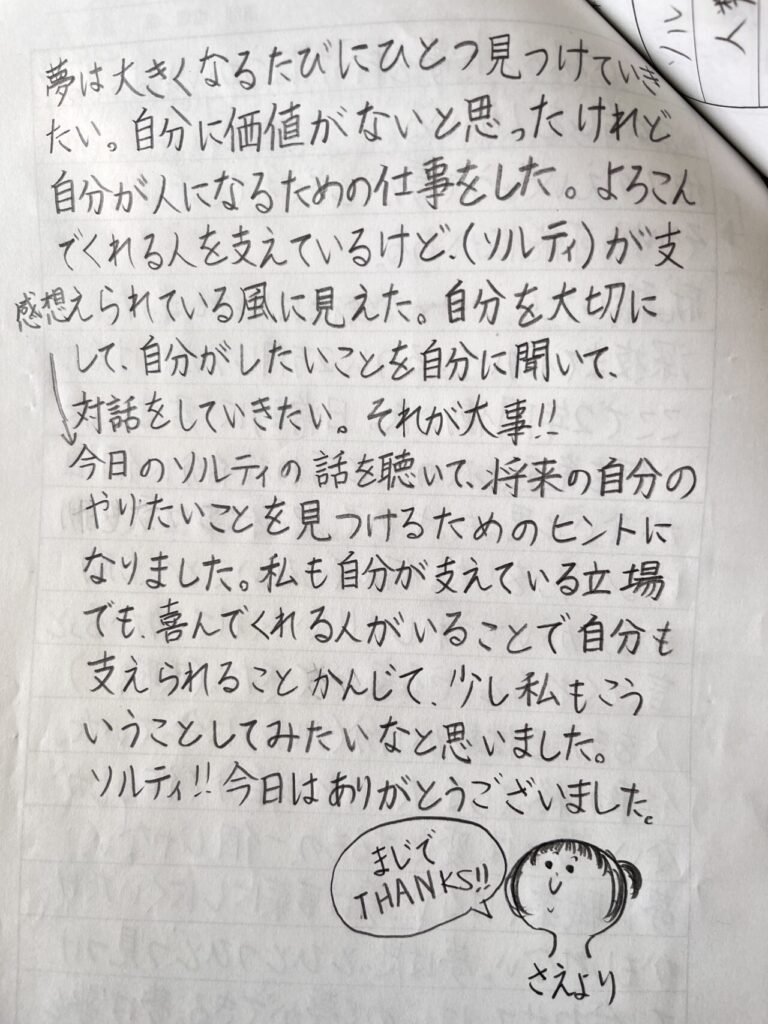 夢は大きくなるたびにひとつ見つけていき
たい。自分に価値がないと思ったけれど
自分が人になるための仕事をした。よろこん
でくれる人を支えているけど、(ソルティ)が支
えられている風に見えた。自分を大切に
して、自分がしたいことを自分に聞いて、
対話をしていきたい。それが大事!!
感想
今日のソルティの話を聴いて、将来の自分の
やりたいことを見つけるためのヒントに
なりました。私も自分が支えている立場
でも、喜んでくれる人がいることで自分も
支えられることかんじて、少し私もこう
いうことしてみたいなと思いました。
ソルティ!!今日はありがとうございました。
まじで
THANKS!!
さえより